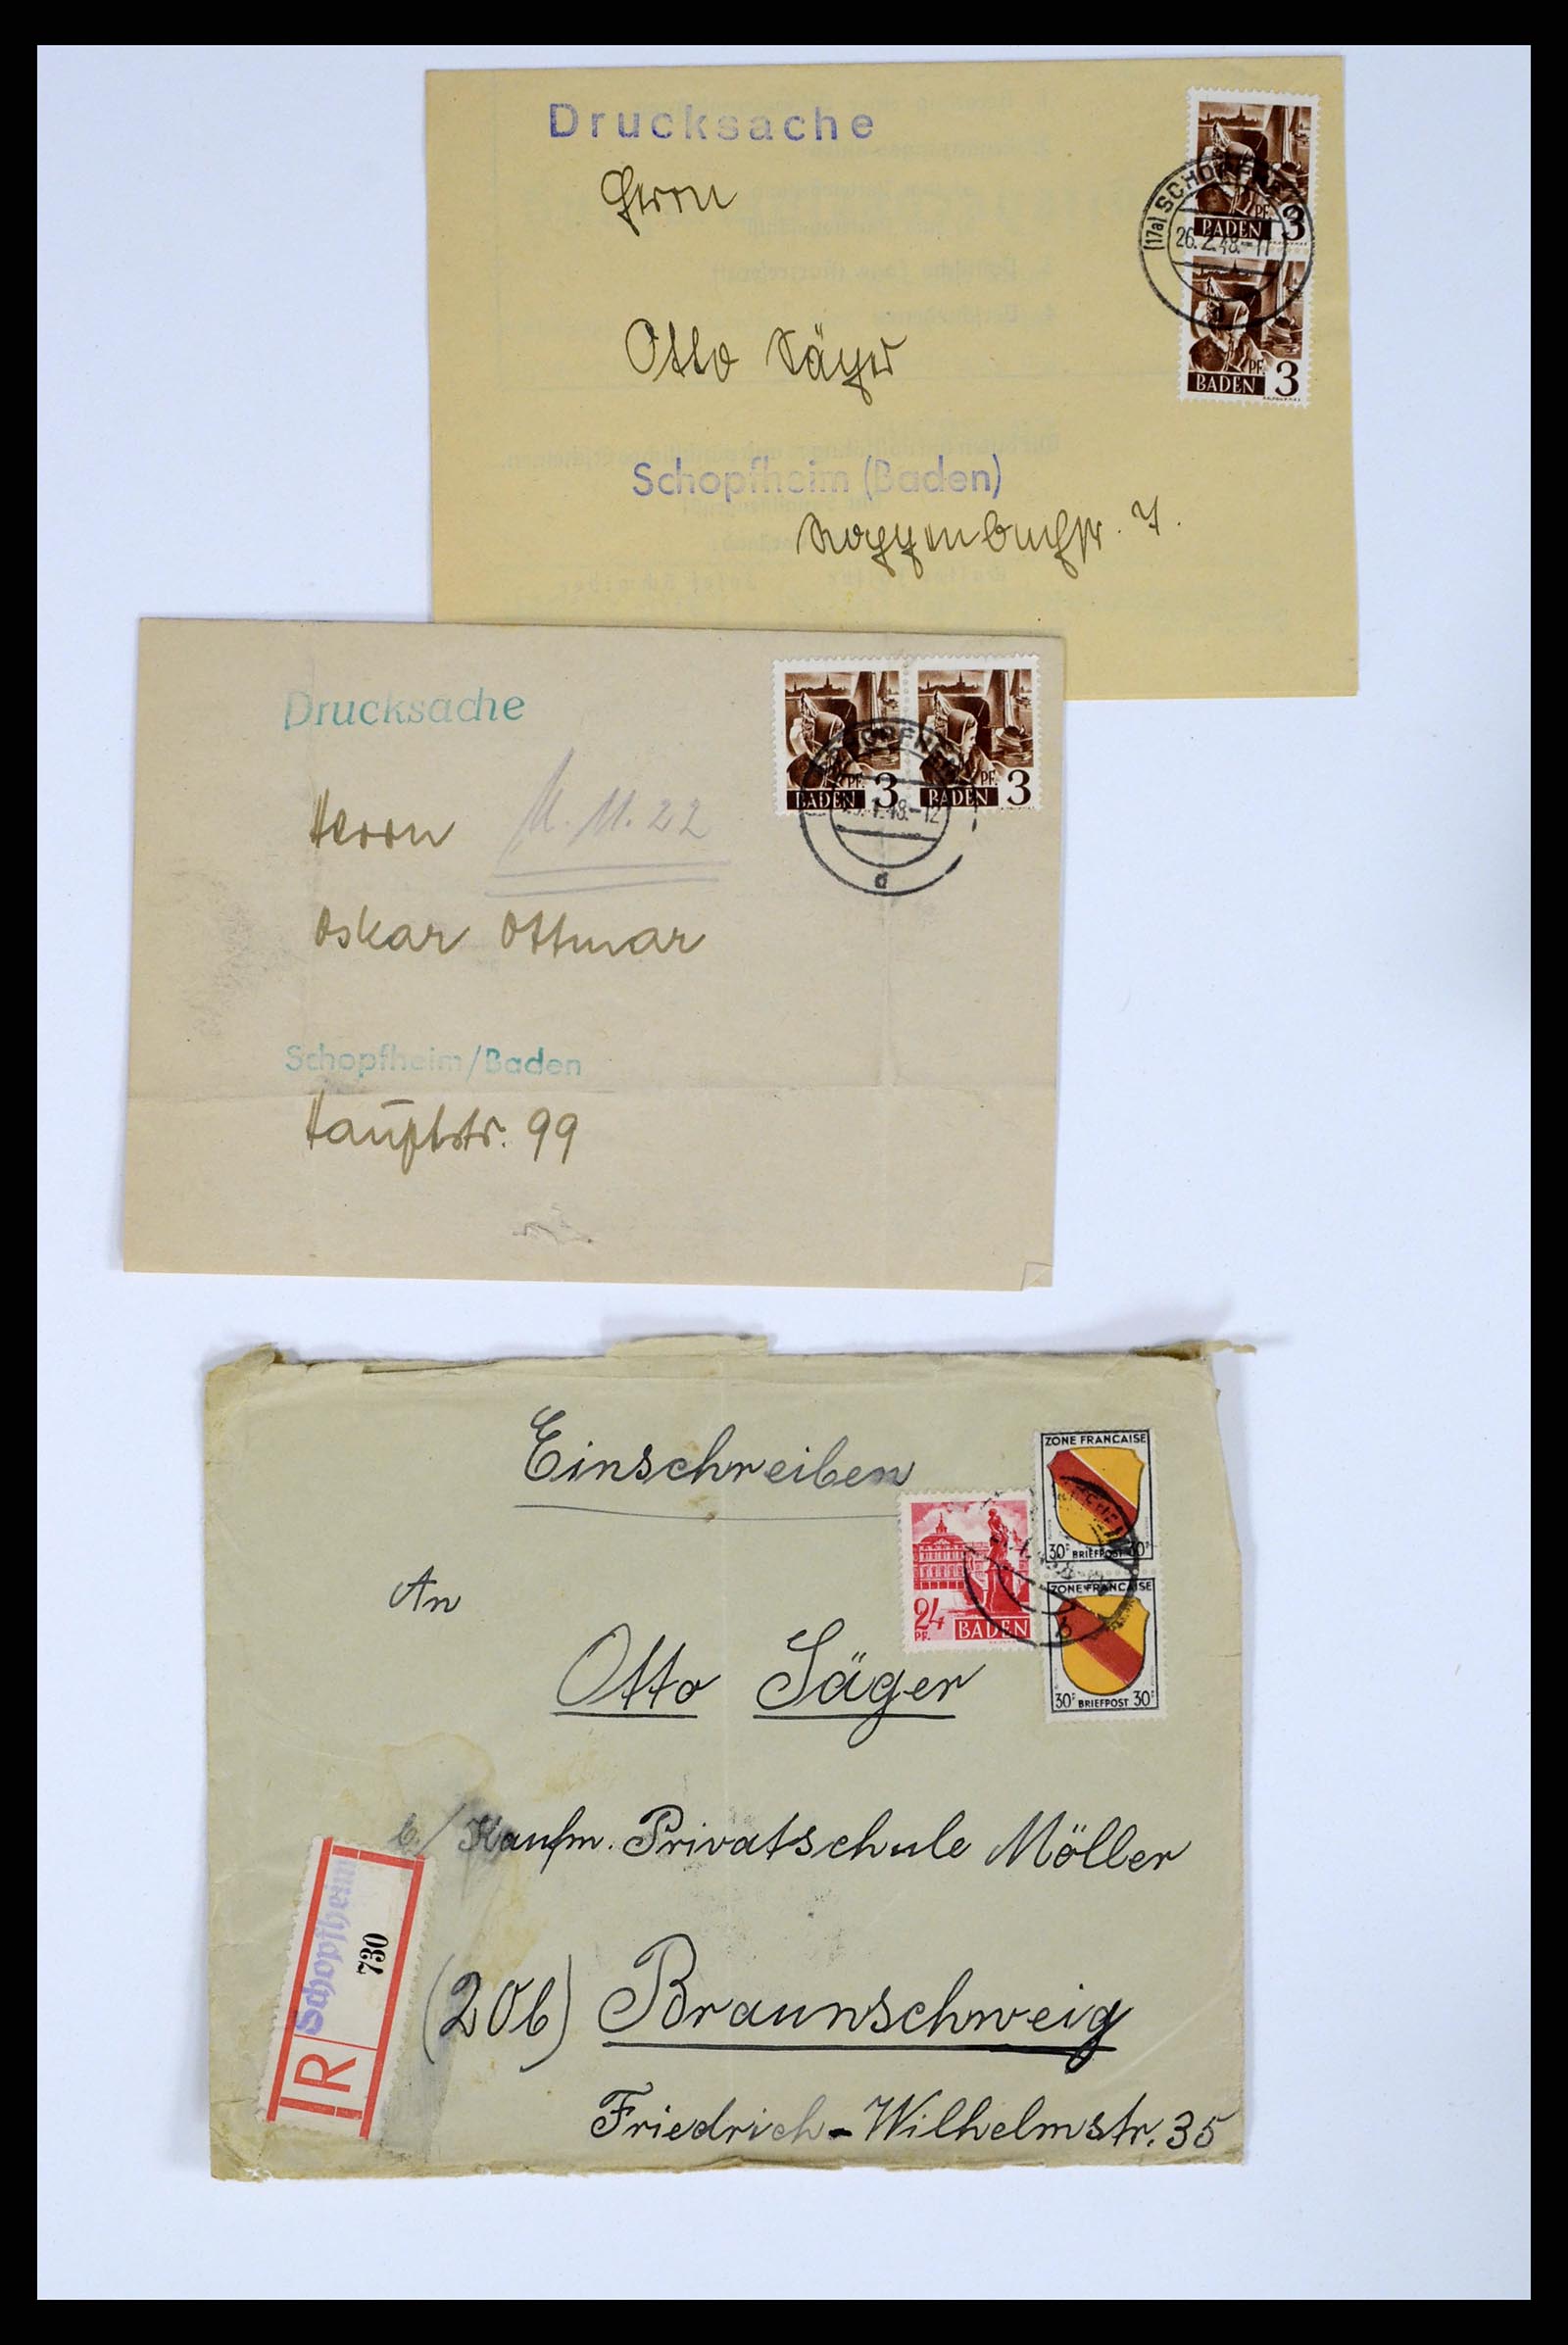 Drucksache
Herrn
Otto Säger
Schopfheim (Baden)
Roggenbachstr. 7.
PF. 3
BADEN
(17a) SCHOPFHEIM
26.2.48.-17
a
PF. 3
BADEN
Drucksache
Herrn
M. M. 22
Oskar Ottmar
Schopfheim/Baden
Hauptstr. 99
PF. 3
BADEN
PF. 3
BADEN
48.-12
d
Einschreiben
An
Otto Säger
b/ Kaufm. Privatschule Möller
(20b) Braunschweig
Friedrich-Wilhelmstr. 35
24
PF. BADEN
ZONE FRANCAISE
30 BRIEFPOST 30
ZONE FRANCAISE
30 BRIEFPOST 30
b
R
Schopfheim
730